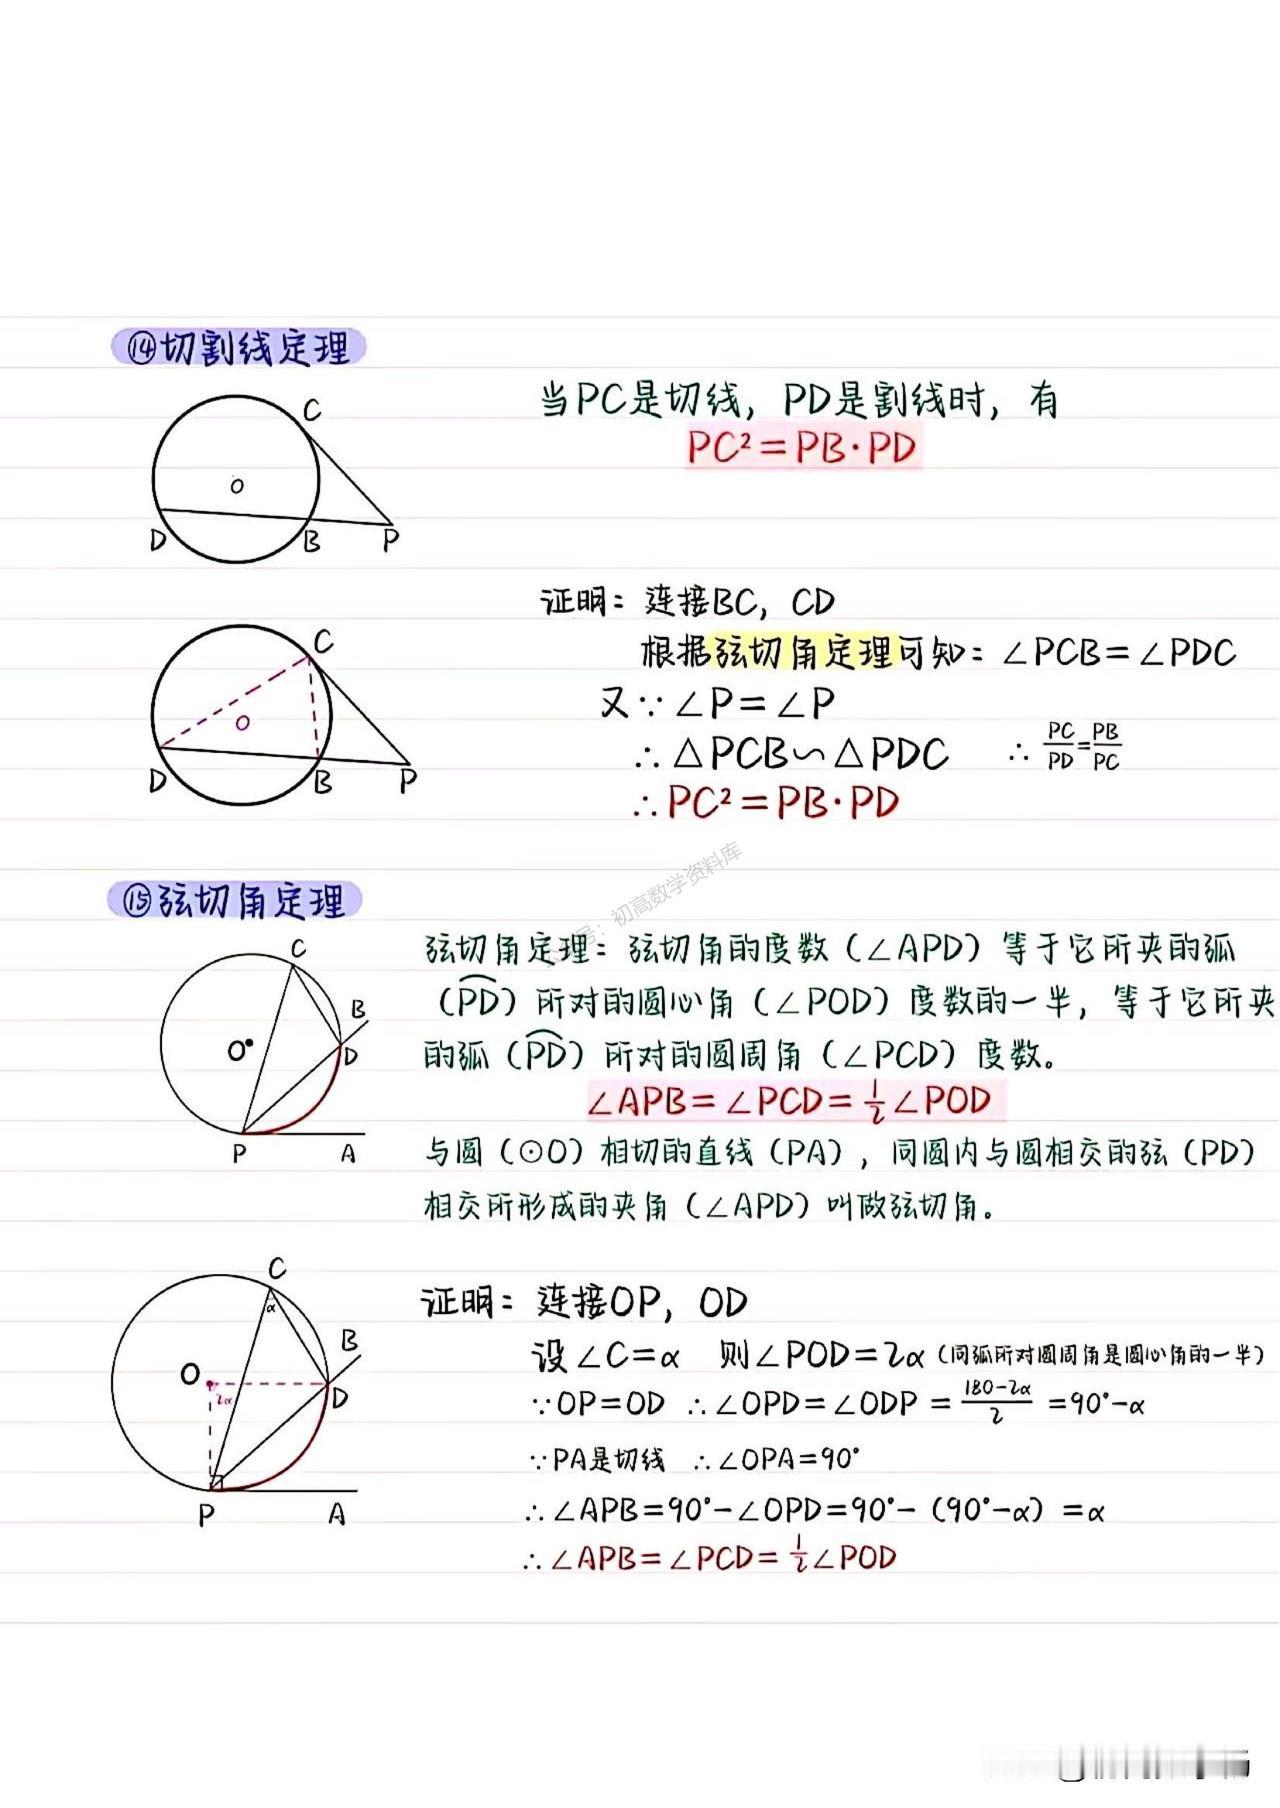 ⑭切割线定理
C
O
D
B
P
当PC是切线，PD是割线时，有
PC²=PB·PD
证明：连接BC，CD
根据弦切角定理可知：∠PCB=∠PDC
又∵∠P=∠P
∴△PCB∽△PDC ∴PC/PD=PB/PC
∴PC²=PB·PD
C
O
D
B
P
号：初高数学资料库
⑮弦切角定理
C
B
O
D
P
A
弦切角定理：弦切角的度数（∠APD）等于它所夹的弧
（P͡D）所对的圆心角（∠POD）度数的一半，等于它所夹
的弧（P͡D）所对的圆周角（∠PCD）度数。
∠APB=∠PCD=½∠POD
与圆（⊙O）相切的直线（PA），同圆内与圆相交的弦（PD）
相交所形成的夹角（∠APD）叫做弦切角。
C
α
B
O
2α
D
P
A
证明：连接OP，OD
设∠C=α 则∠POD=2α（同弧所对圆周角是圆心角的一半）
∵OP=OD ∴∠OPD=∠ODP=(180-2α)/2=90°-α
∵PA是切线 ∴∠OPA=90°
∴∠APB=90°-∠OPD=90°-（90°-α）=α
∴∠APB=∠PCD=½∠POD